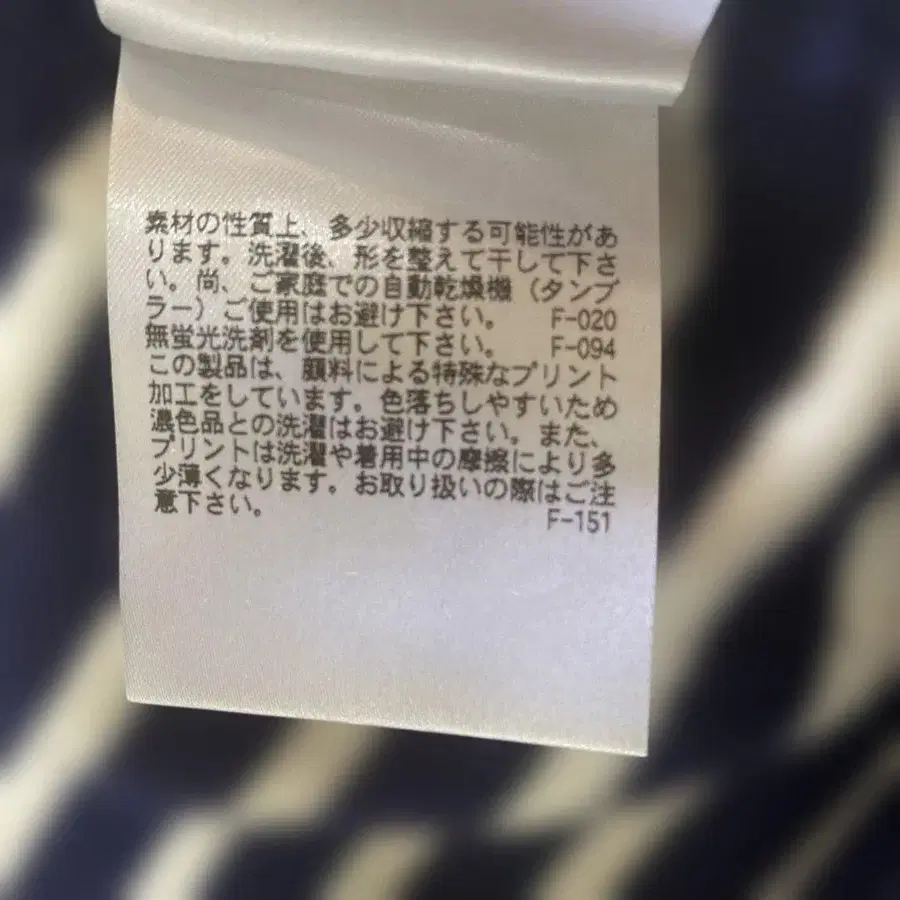 素材の性質上、多少収縮する可能性があ
ります。洗濯後、形を整えて干して下さ
い。尚、ご家庭での自動乾燥機（タンブ
ラー）ご使用はお避け下さい。 F-020
無蛍光洗剤を使用して下さい。 F-094
この製品は、顔料による特殊なプリント
加工をしています。色落ちしやすいため
濃色品との洗濯はお避け下さい。また、
プリントは洗濯や着用中の摩擦により多
少薄くなります。お取り扱いの際はご注
意下さい。 F-151